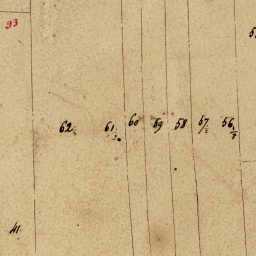 93
62 61 60 59 58 57 56
41